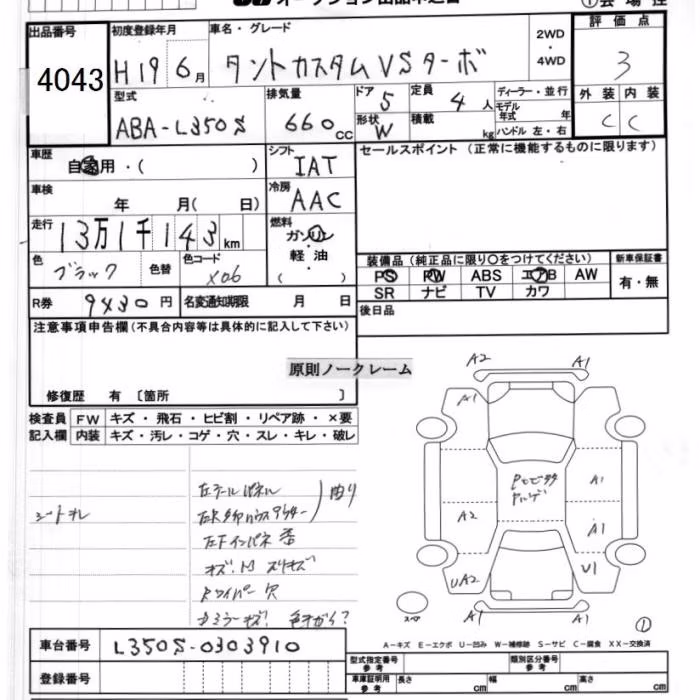 出品番号 初度登録年月 車名・グレード 2WD・4WD 評価点
4043 H19 6月 タントカスタムVSターボ 3
型式 排気量 ドア 5 定員 4人 ディーラー・並行 外装 内装
ABA-L350S 660cc 形状 W 積載 kg モデル年式 年 ハンドル 左・右 C C
車歴 自家用・( ) シフト IAT セールスポイント (正常に機能するものに限ります)
車検 年 月( 日) 冷房 AAC
走行 13万1千143km 燃料 ガソリン 軽・油 ( )
色 ブラック 色替 色コード X06 装備品 (純正品に限り〇をつけてください) 新車保証書
PS PW ABS エアB AW 有・無
SR ナビ TV カワ
R券 9430円 名変通知期限 月 日 後日品
注意事項申告欄(不具合内容等は具体的に記入して下さい)
原則ノークレーム
修復歴 有 〔箇所 〕
検査員記入欄 FW キズ・飛石・ヒビ割・リペア跡・×要
内装 キズ・汚レ・コゲ・穴・スレ・キレ・破レ
A2 A1
A1
A1
A2 A1
UA2 U1
スペア A1 A1 ①
シートオレ
左テールパネル
曲り
Rワイパー 穴
車台番号 L350S-0303910
登録番号
A-キズ E-エクボ U-凹み W-補修跡 S-サビ C-腐食 XX-交換済
型式指定番号 参考 類別区分番号 参考
車庫証明用 参考 長さ cm 幅 cm 高さ cm